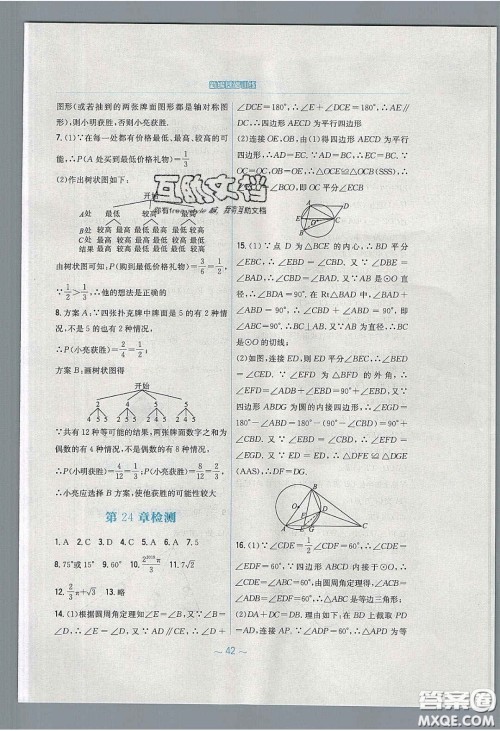 图形(或若抽到的两张牌面图形都是轴对称图
形),则小明获胜,否则小亮获胜.
7.(1)∵在每一处都有价格最低、最高、较高的可
能,∴P(A处买到最低价格礼物)=1/3
(2)作出树状图如下:
开始
A处 最低 较高 最高
B处 较高 最高 最低 最高 最低 较高
C处 最高 较高 最高 最低 较高 最低
由树状图可知,P(购到最低价格礼物)=3/6=1/2,
∵1/2>1/3,∴他的想法是正确的
8.方案A:∵四张扑克牌中牌面是5的有2种情
况,不是5的也有2种情况,
∴P(小亮获胜)=2/4=1/2;
方案B:画树状图得
开始
∵共有12种等可能的结果,两张牌面数字之和为
偶数的有4种情况,不是偶数的有8种情况,
∴P(小明获胜)=4/12=1/3,P(小亮获胜)=8/12=2/3.
∴小亮应选择B方案,使他获胜的可能性较大
第24章检测
1.A 2.D 3.C 4.B 5.C 6.A 7.5
8.75°或15° 9.60°
11.7√2
12.2/3π+√3 13.略
14.(1)根据圆周角定理知∠E=∠B,又∵∠B=
∠D,∴∠E=∠D,又∵AD∥CE,∴∠D+
∠DCE=180°,∴∠E+∠DCE=180°,∴AE
∥DC,∴四边形AECD为平行四边形
(2)连接OE,OB,由(1)得四边形AECD为平行
OC=OC,∴△OCE≌△OCB(SSS),∴∠ECO=
∠OCB,即CO平分∠BCE
15.(1)∵点D为△BCE的内心,∴BD平分
∠EBC,∴∠EBD=∠CBD.又∵∠DBE=
∠BAD,∴∠CBD=∠BAD.又∵AB是⊙O直
径,∴∠BDA=90°.在Rt△BAD中,∠BAD+
∠ABD=90°,∴∠CBD+∠ABD=90°,即
∠ABC=90°,∴BC⊥AB.又∵AB为直径,∴BC
是⊙O的切线;
(2)如图,连接ED,则ED平分∠BEC,∴∠BED
=∠CED.∵∠EFD为△BFD的外角,∴
∠EFD=∠ADB+∠EBD=90°+∠EBD.又∵四
边形ABDG为圆的内接四边形,∴∠EGD=
180°-∠ABD=180°-(90°-∠CBD)=90°+
∠CBD.又∵∠EBD=∠CBD,∴∠EFD=
(AAS),∴DF=DG.
16.(1)∵∠CDE=1/2∠EDF=60°,∴∠CDE=
∠EDF=60°.∵四边形ABCD内接于⊙O,∴
∠CDE=∠ABC=60°.由圆周角定理得,∠ACB=
(2)DA+DC=DB.理由如下:在BD上截取PD
=AD,连接AP,∵∠ADP=60°,∴△APD为等
~ 42 ~
答案圈
MXQE.COM